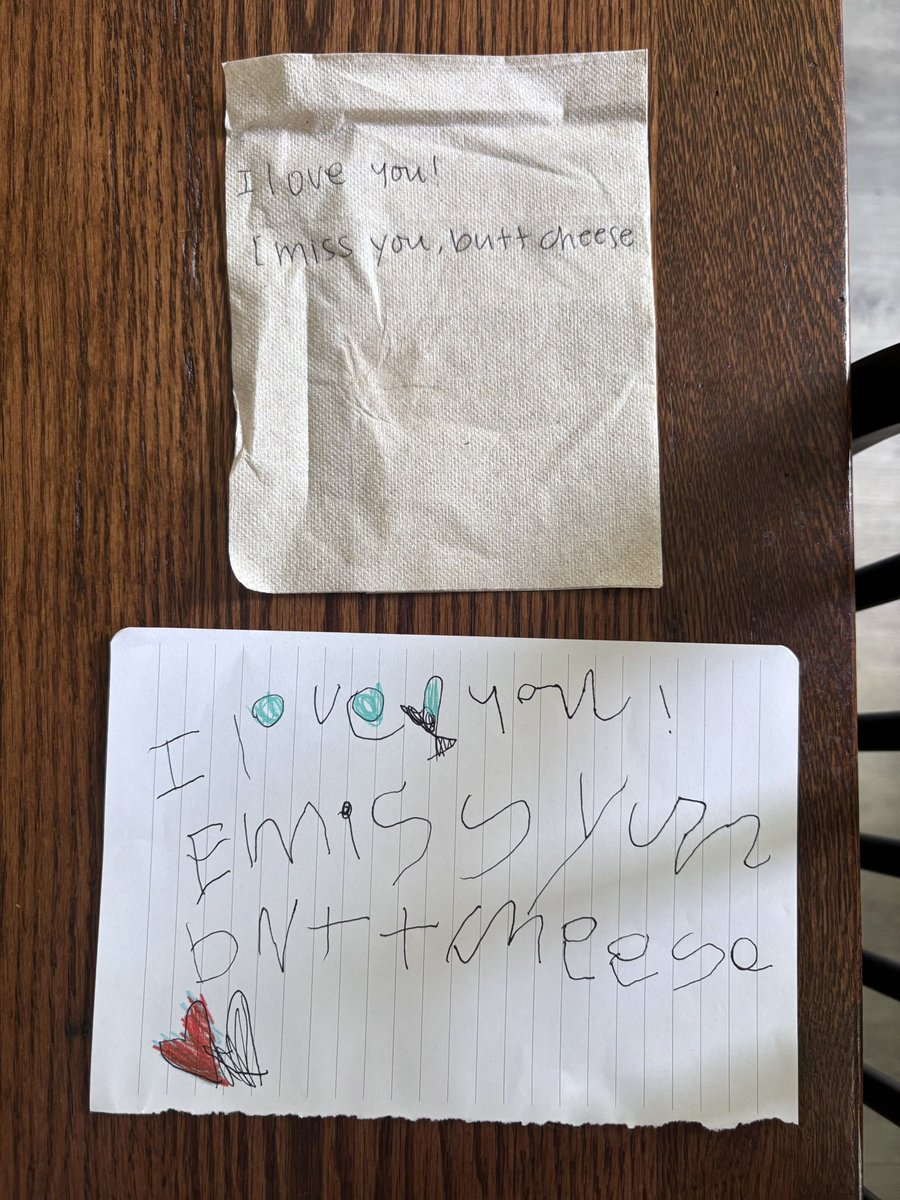 I love you!
I miss you, butt cheese
I love you!
E miss you
butt cheese